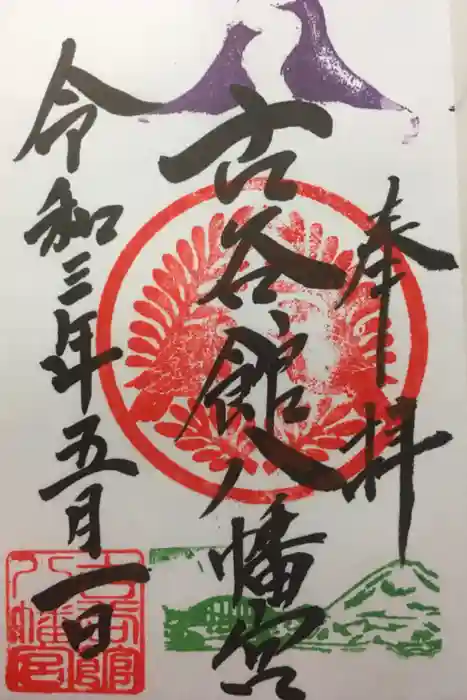 奉拝
古谷館八幡宮
令和三年五月一日
古谷館
八幡宮